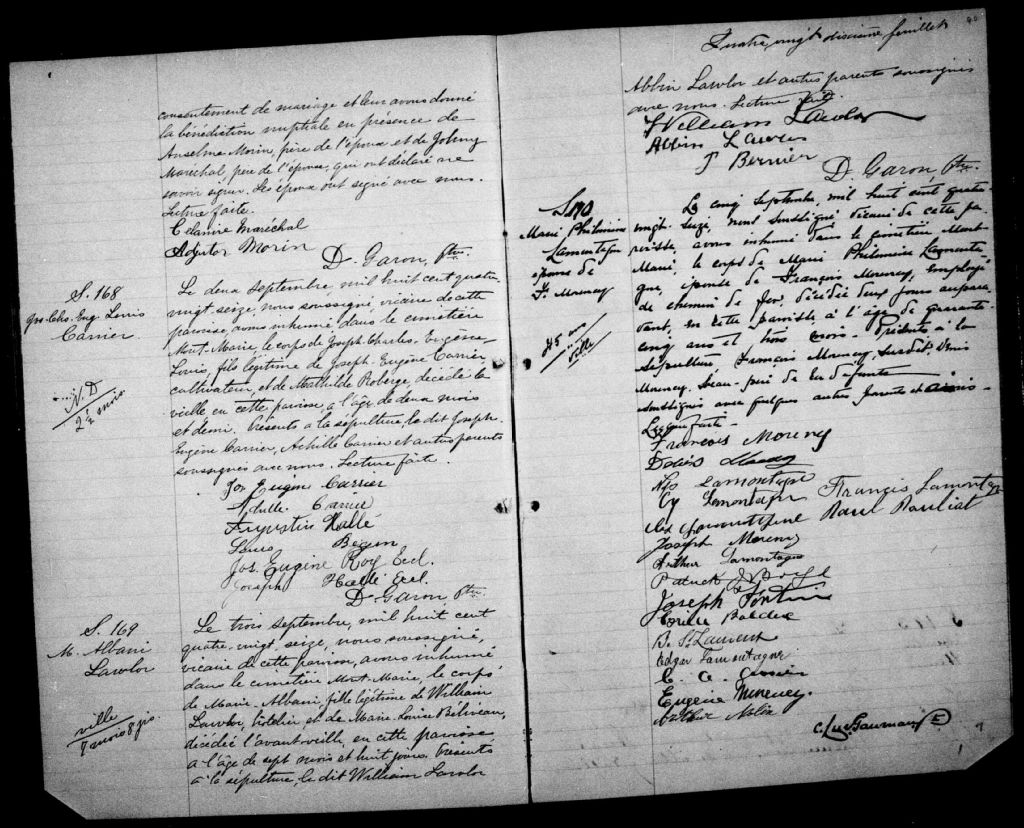 consentement de mariage et leur avons donné
la bénédiction nuptiale en présence de
Anselme Morin, père de l'époux et de Johnny
Maréchal, père de l'épouse, qui ont déclaré ne
savoir signer. Les époux ont signé avec nous.
Lecture faite.
Célanire Maréchal
Adjutor Morin
D. Garon, Ptre
S. 168
Jos. Chs. Eug. Louis
Carrier
N. D
2 1/2 mois
Le deux Septembre, mil huit cent quatre
vingt seize, nous soussigné, vicaire de cette
paroisse, avons inhumé dans le cimetière
Mont-Marie, le corps de Joseph Charles Eugène
Louis, fils légitime de Joseph Eugène Carrier,
cultivateur, et de Mathilde Roberge, décédé la
vieille en cette paroisse, à l'âge de deux mois
et demi. Présents à la sépulture, le dit Joseph
Eugène Carrier, Achille Carrier et autres parents
soussignés avec nous. Lecture faite.
Jos Eugène Carrier
Achille Carrier
Augustin Hallé
Louis Begin
Jos. Eugène Roy Eccl.
Joseph Hallé Eccl.
D. Garon Ptre
S. 169
M. Albani
Lawlor
ville
7 mois 8 jrs
Le trois septembre, mil huit cent
quatre-vingt-seize, nous soussigné,
vicaire de cette paroisse, avons inhumé
dans le cimetière Mont-Marie, le corps
de Marie Albani, fille légitime de William
Lawlor, hôtelier et de Marie Louise Béliveau,
décédée l'avant-veille, en cette paroisse
à l'âge de sept mois et huit jours. Présents
à la sépulture, le dit William Lawlor
Quatre vingt dixième feuillet
90
Albin Lawlor et autres parents soussignés
avec nous. Lecture faite.
William Lawlor
Albin Lawlor
J Bernier
D. Garon, Ptre
S. 170
Marie Philomène
Lamontagne
épouse de
F. Mourney
45 ans
ville
Le cinq Septembre, mil huit cent quatre-
vingt-seize, nous soussigné vicaire de cette pa-
roisse, avons inhumé dans le cimetière Mont-
Marie, le corps de Marie Philomène Lamonta-
gne, épouse de François Mourney, employé
de chemin de fer, décédée deux jours aupara-
vant, en cette paroisse à l'âge de quarante
cinq ans et trois mois. Présents à la
sépulture François Mourney susdit, Denis
Mourney, beau-père de la défunte
soussignés avec quelques autres parents et amis.
Lecture faite.
François Moreney
Lamontagne
Cy Lemontagne
François Lamontagne
Raoul Pouliot
Joseph Moreney
Arthur Lamontagne
Patrick Boyle
Joseph Fortin
B. St Laurent
Edgar Lamontagne
Eugène Moreney
Arthur Nolin